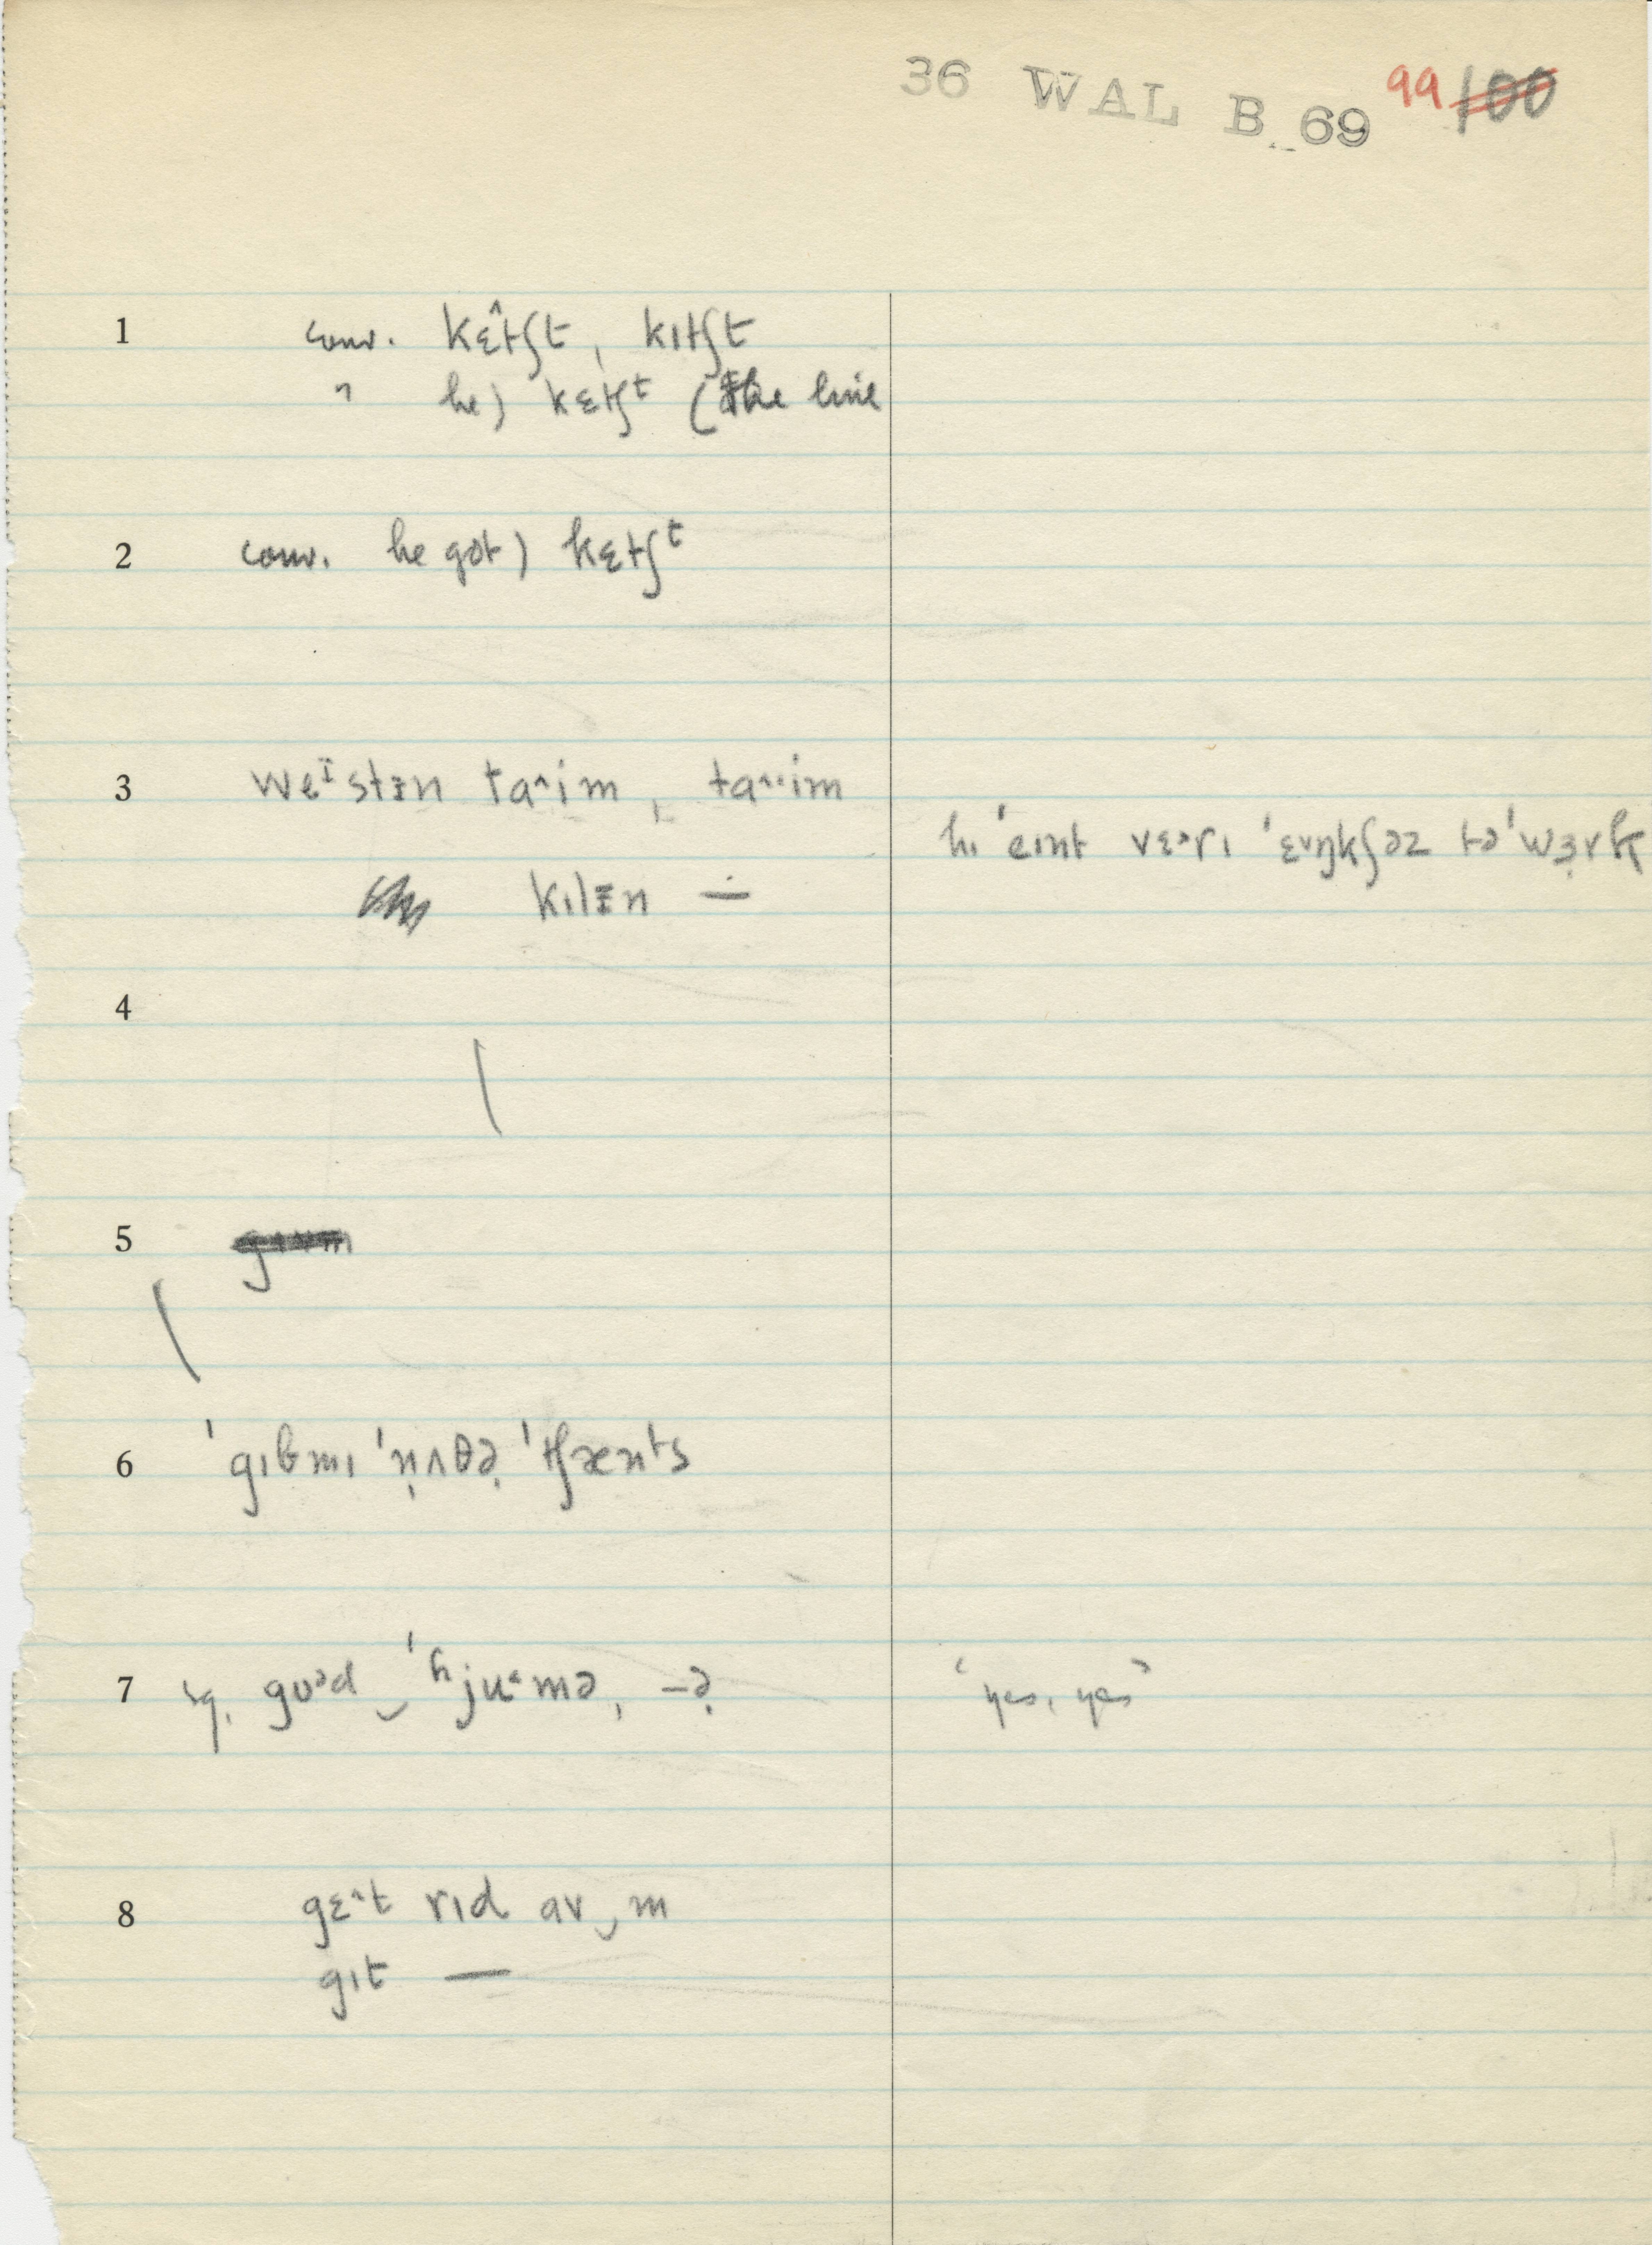 36 WAL B 69 99 100
1 conv. kɛ̂tʃt, kɪtʃt
" he) kɛtʃᵗ (the line
2 conv. he got) kɛtʃᵗ
3 weᶦstɪn ta^im, ta^^im
hɪ ˈeɪnt vɛᵊrɪ ˈɛʋŋkʃəz təˈwɜrk
kɪlɪn ∸
4
5
6 ˈgɪbmɪ ˈn̩ʌðə̣ ˈtʃænᵗs
7 sq. gʊᵊd‿ˈʰjuᵋmə, –ə̣
'yes, yes'
8 gɛ^t rɪd ɑv‿m
gɪt —